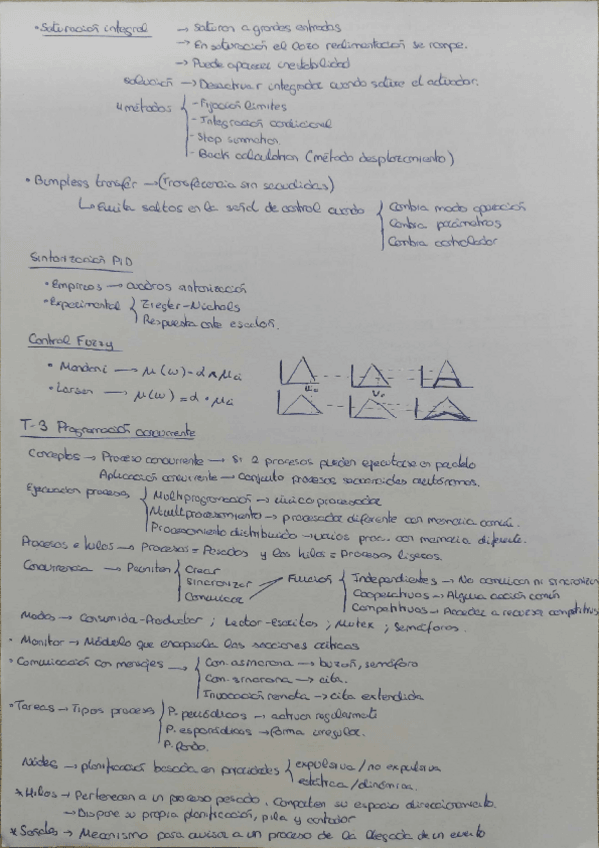 • Saturación integral → Saturan a grandes entradas
→ En saturación el lazo realimentación se rompe.
→ Puede aparecer inestabilidad
Solución → Desactivar integrador cuando sature el actuador.
4 métodos
- Fijación límites
- Integración condicional
- Stop summation
- Back calculation (método desplazamiento)
• Bumpless transfer → (Transferencia sin sacudidas)
↳ Evita saltos en la señal de control cuando
Cambia modo operación
Cambia parámetros
Cambia controlador
Sintonización PID
• Empíricos → cuadros sintonización
• Experimental
Ziegler-Nichols
Respuesta ante escalón.
Control Fuzzy
• Mandani → μ(w) = α ∧ μa
• Larsen → μ(w) = α • μa
T-3 Programación concurrente
Conceptos → Proceso concurrente → Si 2 procesos pueden ejecutarse en paralelo
Aplicación concurrente → Conjunto procesos secuenciales autónomos.
Ejecución procesos
Multiprogramación → único procesador
Multiprocesamiento → procesador diferente con memoria común.
Procesamiento distribuido → varios proc. con memoria diferente.
Procesos e hilos → Procesos = Pesados y los hilos = Procesos ligeros.
Concurrencia → Permiten
Crear
Sincronizar
Comunicar
Función
Independientes → No comunican ni sincronizan
Cooperativos → Alguna acción común
Competitivos → Acceder a recursos competitivos
Modos → Consumidor-Productor ; Lector-Escritor ; Mutex ; Semáforos.
• Monitor → Módulo que encapsula las secciones críticas
• Comunicación con mensajes →
Con. asíncrona → buzón, semáforo
Con. síncrona → cita.
Invocación remota → cita extendida
• Tareas → Tipos procesos
P. periódicos → activan regularmente
P. esporádicos → forma irregular.
P. fondo.
Núcleo → planificación basada en prioridades
expulsiva / no expulsiva
estática / dinámica.
* Hilos → Pertenecen a un proceso pesado. Comparten su espacio direccionamiento.
→ Dispone su propia planificación, pila y contador
* Señales → Mecanismo para avisar a un proceso de la llegada de un evento